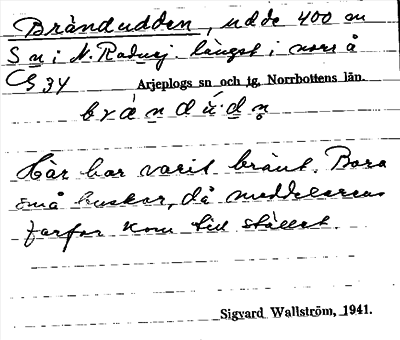 Brändudden, udde 400 m
S n i N. Radnej. längst i norr å
Cg 34 Arjeplogs sn och tg, Norrbottens län.
Här har varit bränt. Bara
små buskar, då meddelarens
farfar kom till stället.
Sigvard Wallström, 1941.